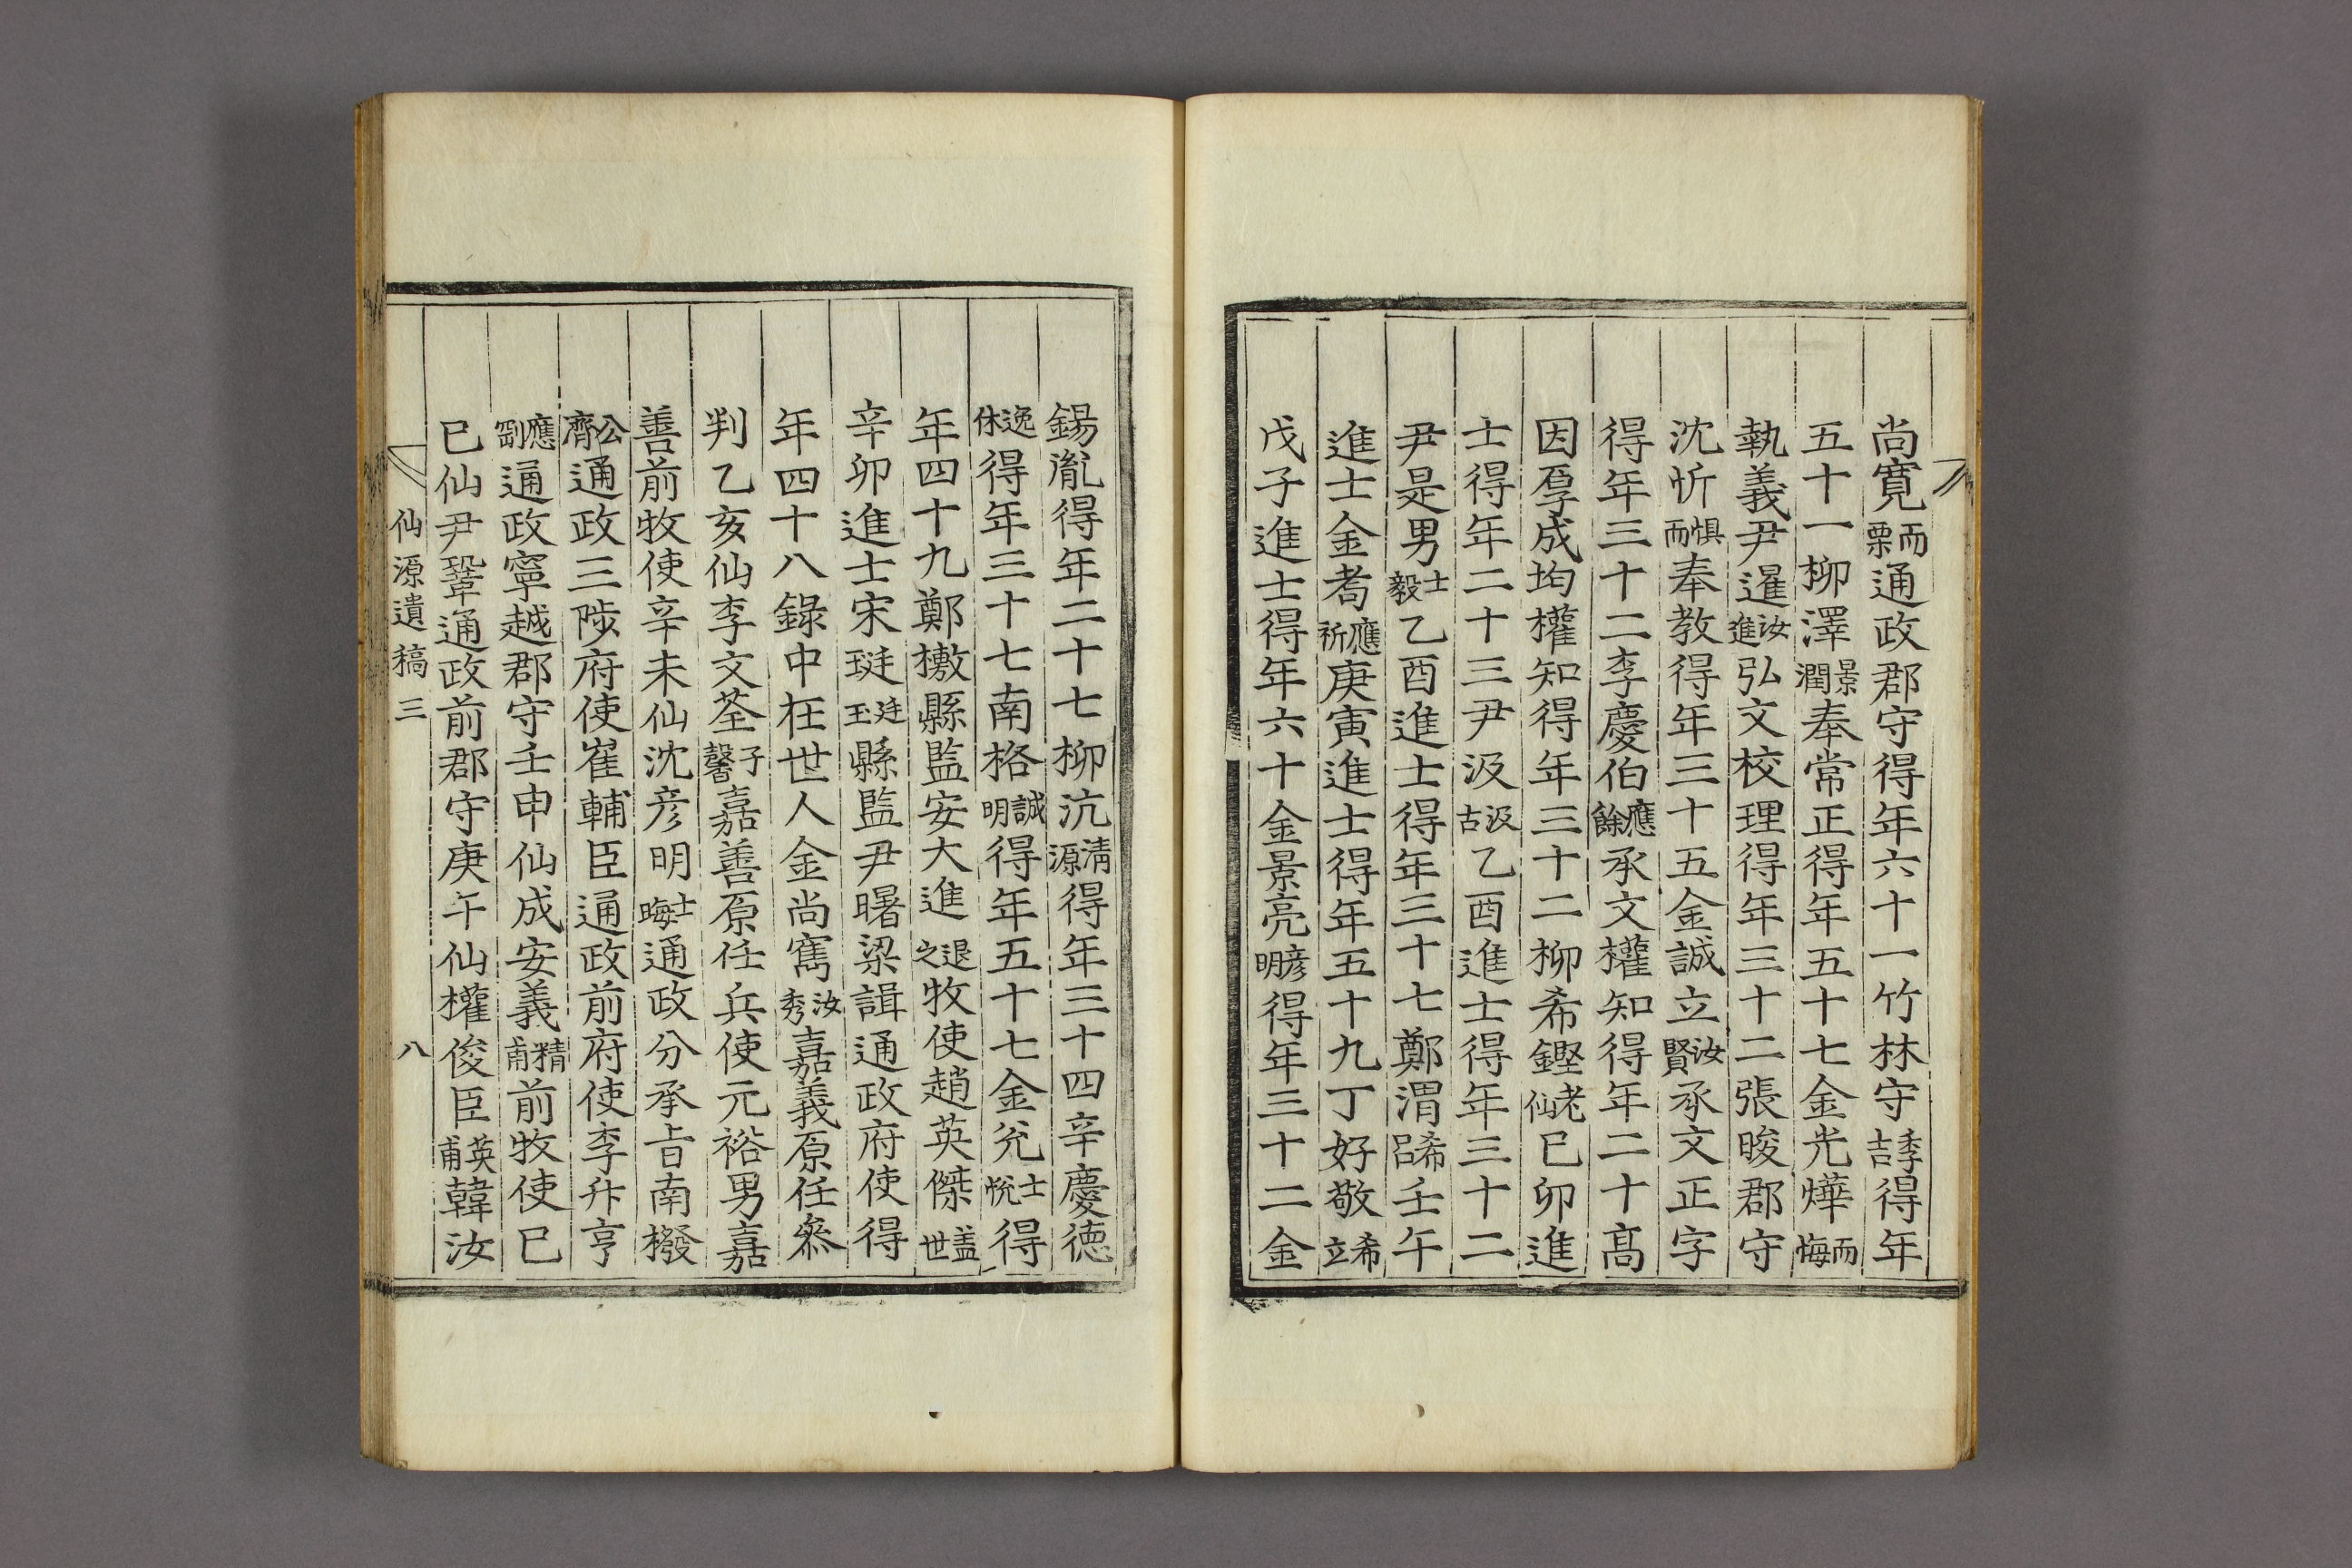 尚寬而栗通政郡守得年六十一竹林守季吉得年
五十一柳澤景潤奉常正得年五十七金光燁而晦
執義尹暹汝進弘文校理得年三十二張晙郡守
沈忻懼而奉教得年三十五金誠立汝賢承文正字
得年三十二李慶伯應餘承文權知得年二十高
因厚成均權知得年三十二柳希鏗老仙己卯進
士得年二十三尹汲汲古乙酉進士得年三十二
尹是男士毅乙酉進士得年三十七鄭渭希呂壬午
進士金耇應祈庚寅進士得年五十九丁好敬希立
戊子進士得年六十金景亮彥明得年三十二金
錫胤得年二十七柳沆淸源得年三十四辛慶德
逸休得年三十七南格誠明得年五十七金兊士悅得
年四十九鄭檄縣監安大進退之牧使趙英傑盖世
辛卯進士宋珽廷玉縣監尹曙梁諿通政府使得
年四十八錄中在世人金尚寯汝秀嘉義原任叅
判乙亥仙李文荃子馨嘉善原任兵使元裕男嘉
善前牧使辛未仙沈彦明士晦通政分承旨南撥
公濟通政三陟府使崔輔臣通政前府使李升亨
應劄通政寧越郡守壬申仙成安義精甫前牧使己
巳仙尹鞏通政前郡守庚午仙權俊臣英甫韓汝
仙源遺稿 三 八